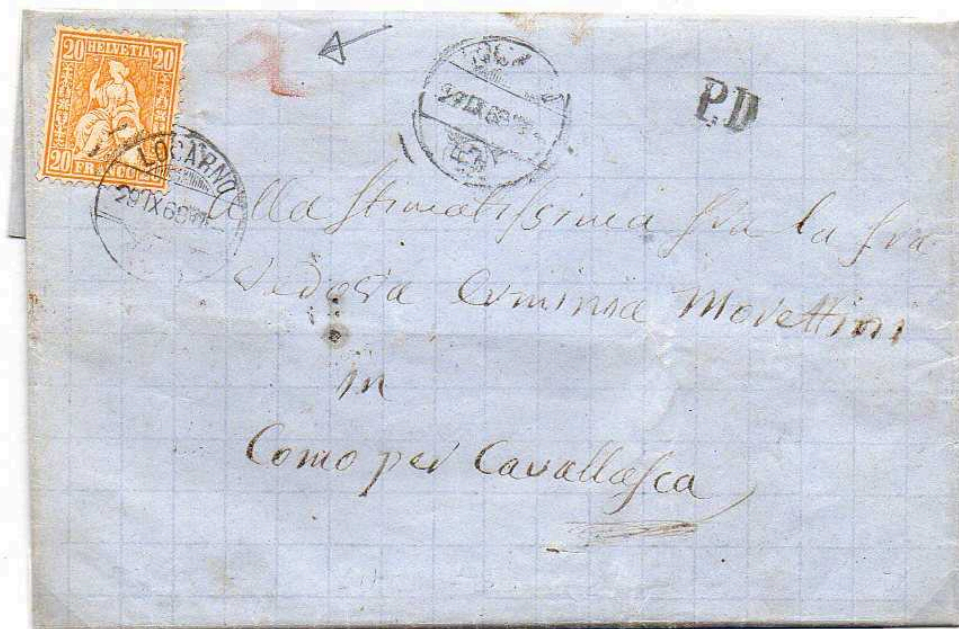 20 HELVETIA 20
20 FRANCO 20
LOCARNO
29 IX 69
LOCARNO
29 IX 69
P.D
Alla Stimatissima Sra la Sra
Vedova Erminia Morettini
in
Como per Cavallasca